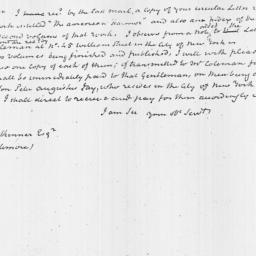 I rec.d by the last mail, a copy of your circular Letter
work entitled "The american Farmer" and also an Index of the
second volume of that work. I observe from a note, to
Coleman at N.o 45 William Street in the City of New York is
volumes being finished and published, I will with pleasure
one copy of each of them; if transmitted to M.r Coleman
shall be immediately paid to that Gentleman, on their being
Son Peter Augustus Jay, who resides in the City of New York
I shall direct to receive & and pay for them accordingly
I am Sir your Ob.t Serv.t
Skinner Esq.r